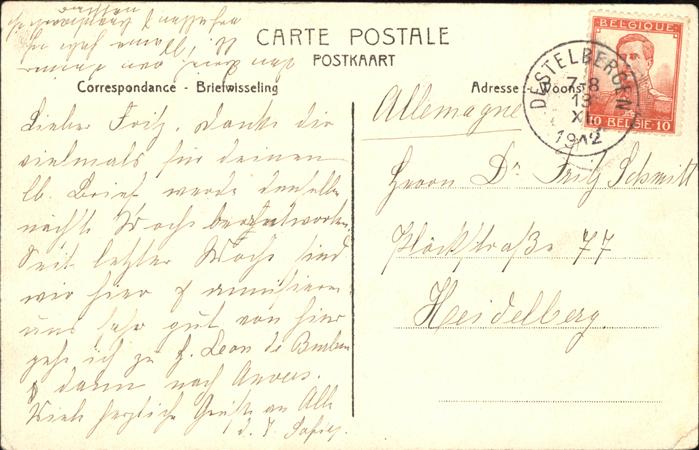 CARTE POSTALE
POSTKAART
Correspondance - Briefwisseling
Adresse - Woonst
BELGIQUE
10 BELGIE 10
DESTELBERGEN
7-8
13
XI
1912
Lieber Fritz, danke dir
vielmals für deinen
lb. Brief werde denselben
nächste Woche beantworten.
Seit letzter Woche sind
wir hier & amüsieren
uns sehr gut von hier
gehe ich zu Leon de
& dann nach Anvers.
Viele herzliche Grüße an Alle
d. T.
Allemagne
Herrn Dr Fritz Schmitt
Plöckstraße 77
Heidelberg.